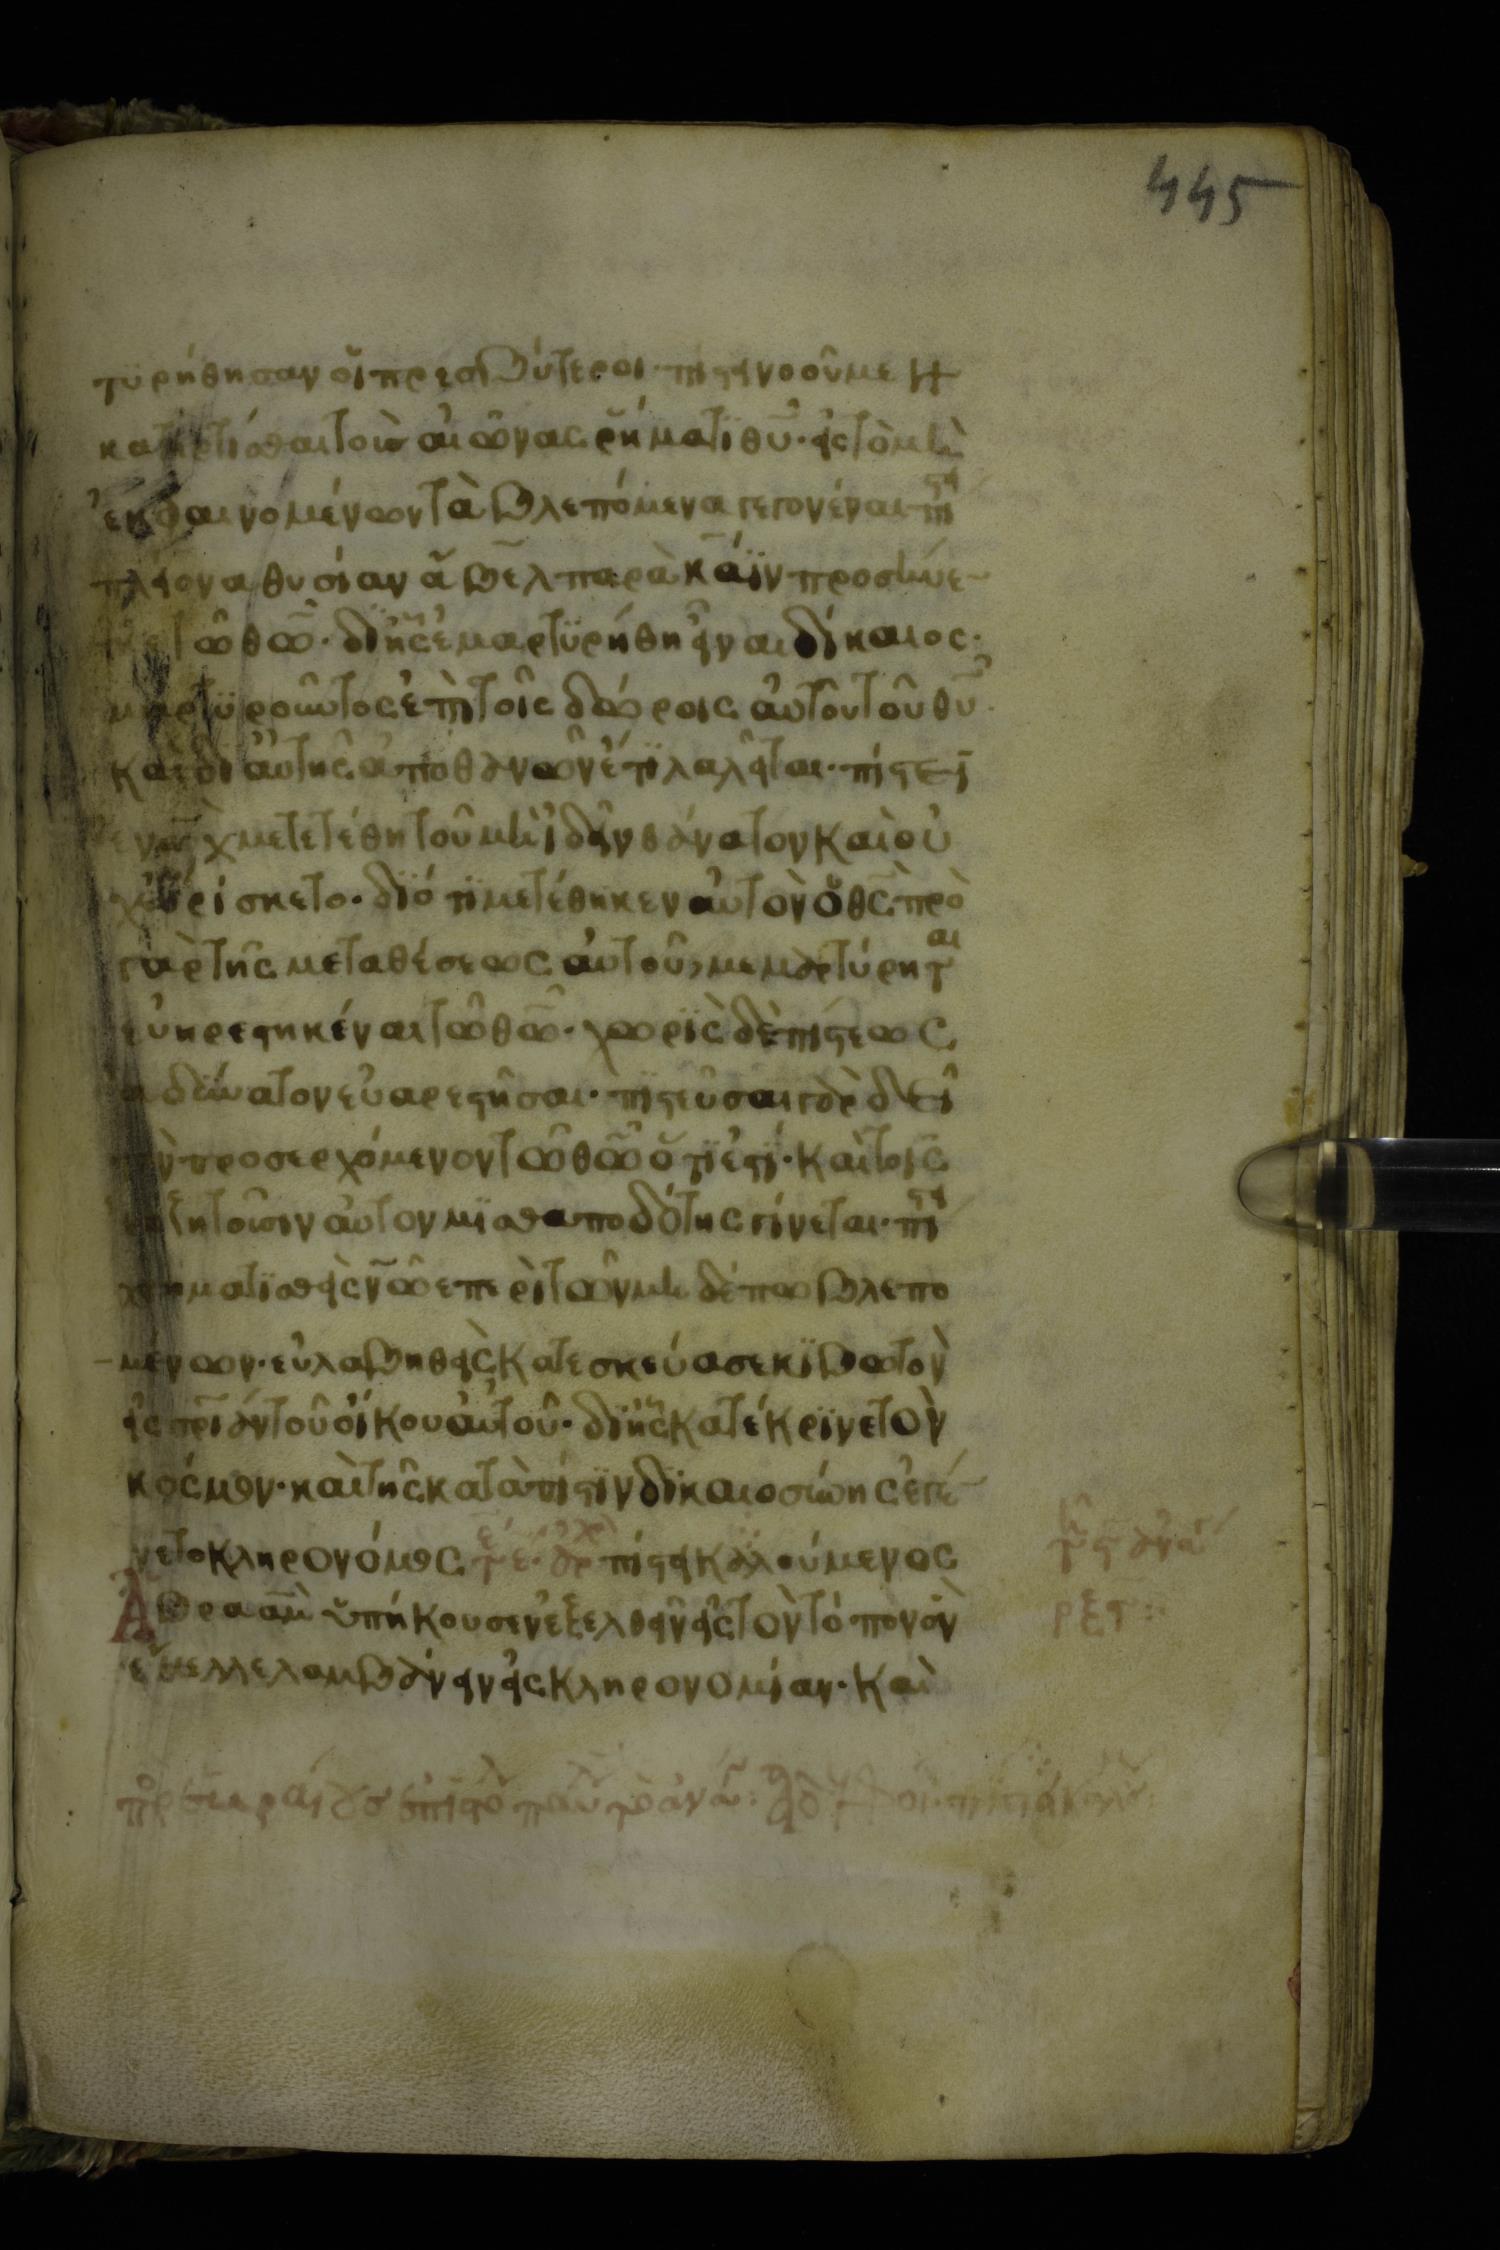 445
τϋρήθησαν οἱ πρεσβύτεροι· πίστει νοοῦμεν
κατηρτίσθαι τοὺς αἰῶνας ῥήματι θυ̅· εἰς τὸ μὴ
ἐκ φαινομένων τὰ βλεπόμενα γεγονέναι· πίστει
πλείονα θυσίαν ἄβελ παρὰ κάϊν προσήνε
τῶ θω̅· δι ἧς ἐμαρτϋρήθη εἶναι δίκαιος·
μαρτϋροῦντος ἐπὶ τοῖς δώροις αὐτοῦ τοῦ θυ̅·
καὶ δι αὐτῆς ἀποθανὼν ἔτϊ λαλεῖται· πίστει
ἐνὼχ μετετέθη τοῦ μὴ ἰδεῖν θάνατον καὶ οὐ
χ εὑρίσκετο· δϊότϊ μετέθηκεν αὐτὸν ὁ θς̅· πρὸ
γὰρ τῆς μεταθέσεως αὐτοῦ, μεμαρτύρηται
εὐηρεστηκέναι τῶ θω̅· χωρϊς δὲ πίστεως
ἀδύνατον εὐαρεστῆσαι· πϊστεῦσαι γὰρ δεῖ
τὸν προσερχόμενον τῶ θω̅ ὅτϊ ἐστϊ· καὶ τοῖς
ἐκζητοῦσιν αὐτον μϊσθαποδότης γίνεται· πίστει
χρηματϊσθεὶς νῶε περὶ τῶν μηδέπω βλεπο
μένων· εὐλαβηθεὶς κατεσκεύασε κϊβωτὸν
εἰς σπρι̅αν τοῦ οἴκου αὐτοῦ· δϊ ἧς κατέκρϊνε τὸν
κόσμον· καὶ τῆς κατὰ πίστϊν δϊκαιοσύνης ἐγέ
νετο κληρονόμος πίστει καλούμενος
Ἀβραὰμ ὑπήκουσεν ἐξελθεῖν εἰς τὸν τόπον ὃν
ἔμελλε λαμβάνειν εἰς κληρονομίαν· καὶ